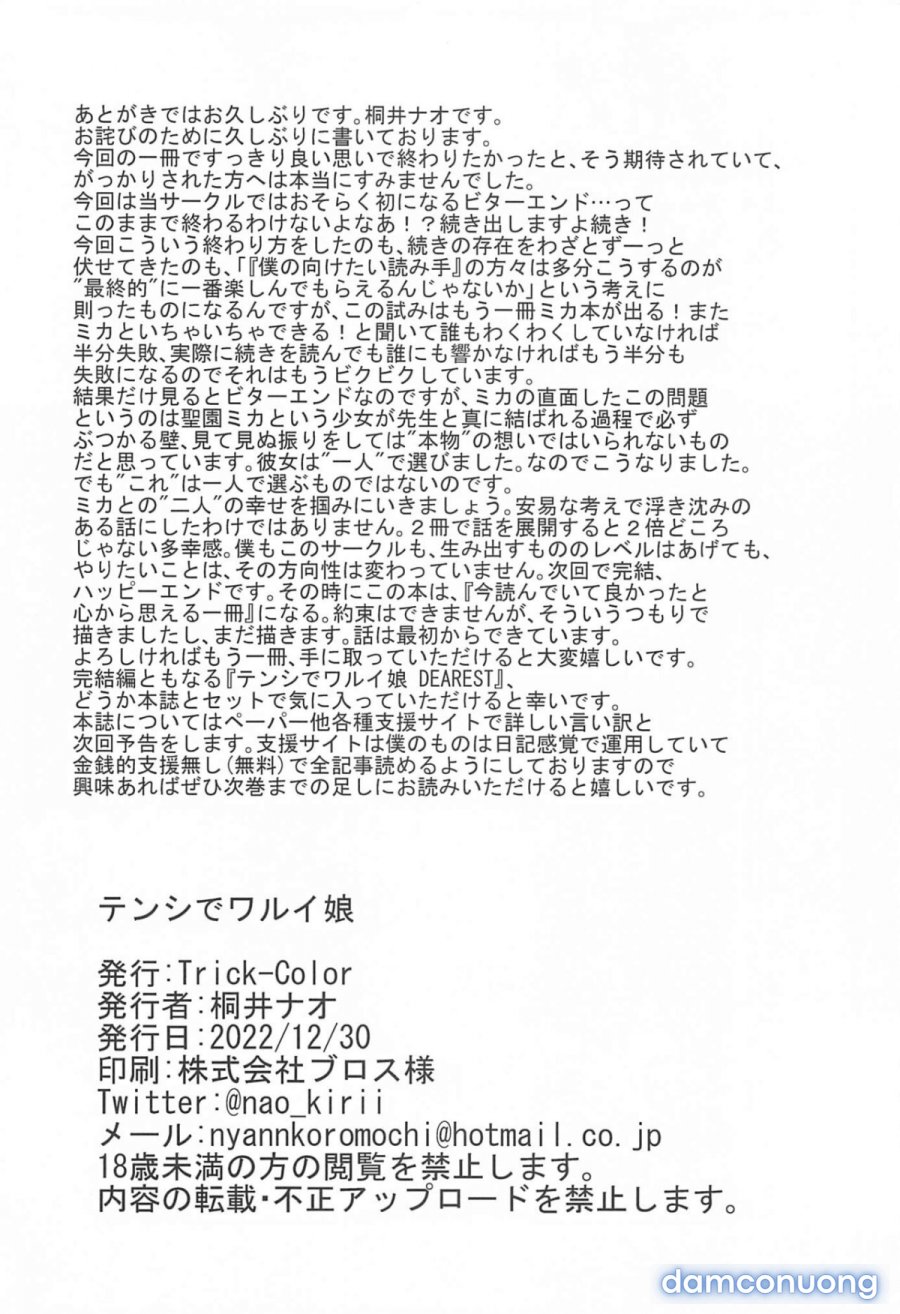 あとがきではお久しぶりです。桐井ナオです。
お詫びのために久しぶりに書いております。
今回の一冊ですっきり良い思いで終わりたかったと、そう期待されていて、
がっかりされた方へは本当にすみませんでした。
今回は当サークルではおそらく初になるビターエンド…って
このままで終わるわけないよなあ！？続き出しますよ続き！
今回こういう終わり方をしたのも、続きの存在をわざとずーっと
伏せてきたのも、「『僕の向けたい読み手』の方々は多分こうするのが
"最終的"に一番楽しんでもらえるんじゃないか」という考えに
則ったものになるんですが、この試みはもう一冊ミカ本が出る！また
ミカといちゃいちゃできる！と聞いて誰もわくわくしていなければ
半分失敗、実際に続きを読んでも誰にも響かなければもう半分も
失敗になるのでそれはもうビクビクしています。
結果だけ見るとビターエンドなのですが、ミカの直面したこの問題
というのは聖園ミカという少女が先生と真に結ばれる過程で必ず
ぶつかる壁、見て見ぬ振りをしては"本物"の想いではいられないもの
だと思っています。彼女は"一人"で選びました。なのでこうなりました。
でも"これ"は一人で選ぶものではないのです。
ミカとの"二人"の幸せを掴みにいきましょう。安易な考えで浮き沈みの
ある話にしたわけではありません。２冊で話を展開すると２倍どころ
じゃない多幸感。僕もこのサークルも、生み出すもののレベルはあげても、
やりたいことは、その方向性は変わっていません。次回で完結、
ハッピーエンドです。その時にこの本は、『今読んでいて良かったと
心から思える一冊』になる。約束はできませんが、そういうつもりで
描きましたし、まだ描きます。話は最初からできています。
よろしければもう一冊、手に取っていただけると大変嬉しいです。
完結編ともなる『テンシでワルイ娘 DEAREST』、
どうか本誌とセットで気に入っていただけると幸いです。
本誌についてはペーパー他各種支援サイトで詳しい言い訳と
次回予告をします。支援サイトは僕のものは日記感覚で運用していて
金銭的支援無し(無料)で全記事読めるようにしておりますので
興味あればぜひ次巻までの足しにお読みいただけると嬉しいです。
テンシでワルイ娘
発行:Trick-Color
発行者:桐井ナオ
発行日:2022/12/30
印刷:株式会社ブロス様
Twitter:@nao_kirii
メール:nyannkoromochi@hotmail.co.jp
18歳未満の方の閲覧を禁止します。
内容の転載・不正アップロードを禁止します。
damconuong